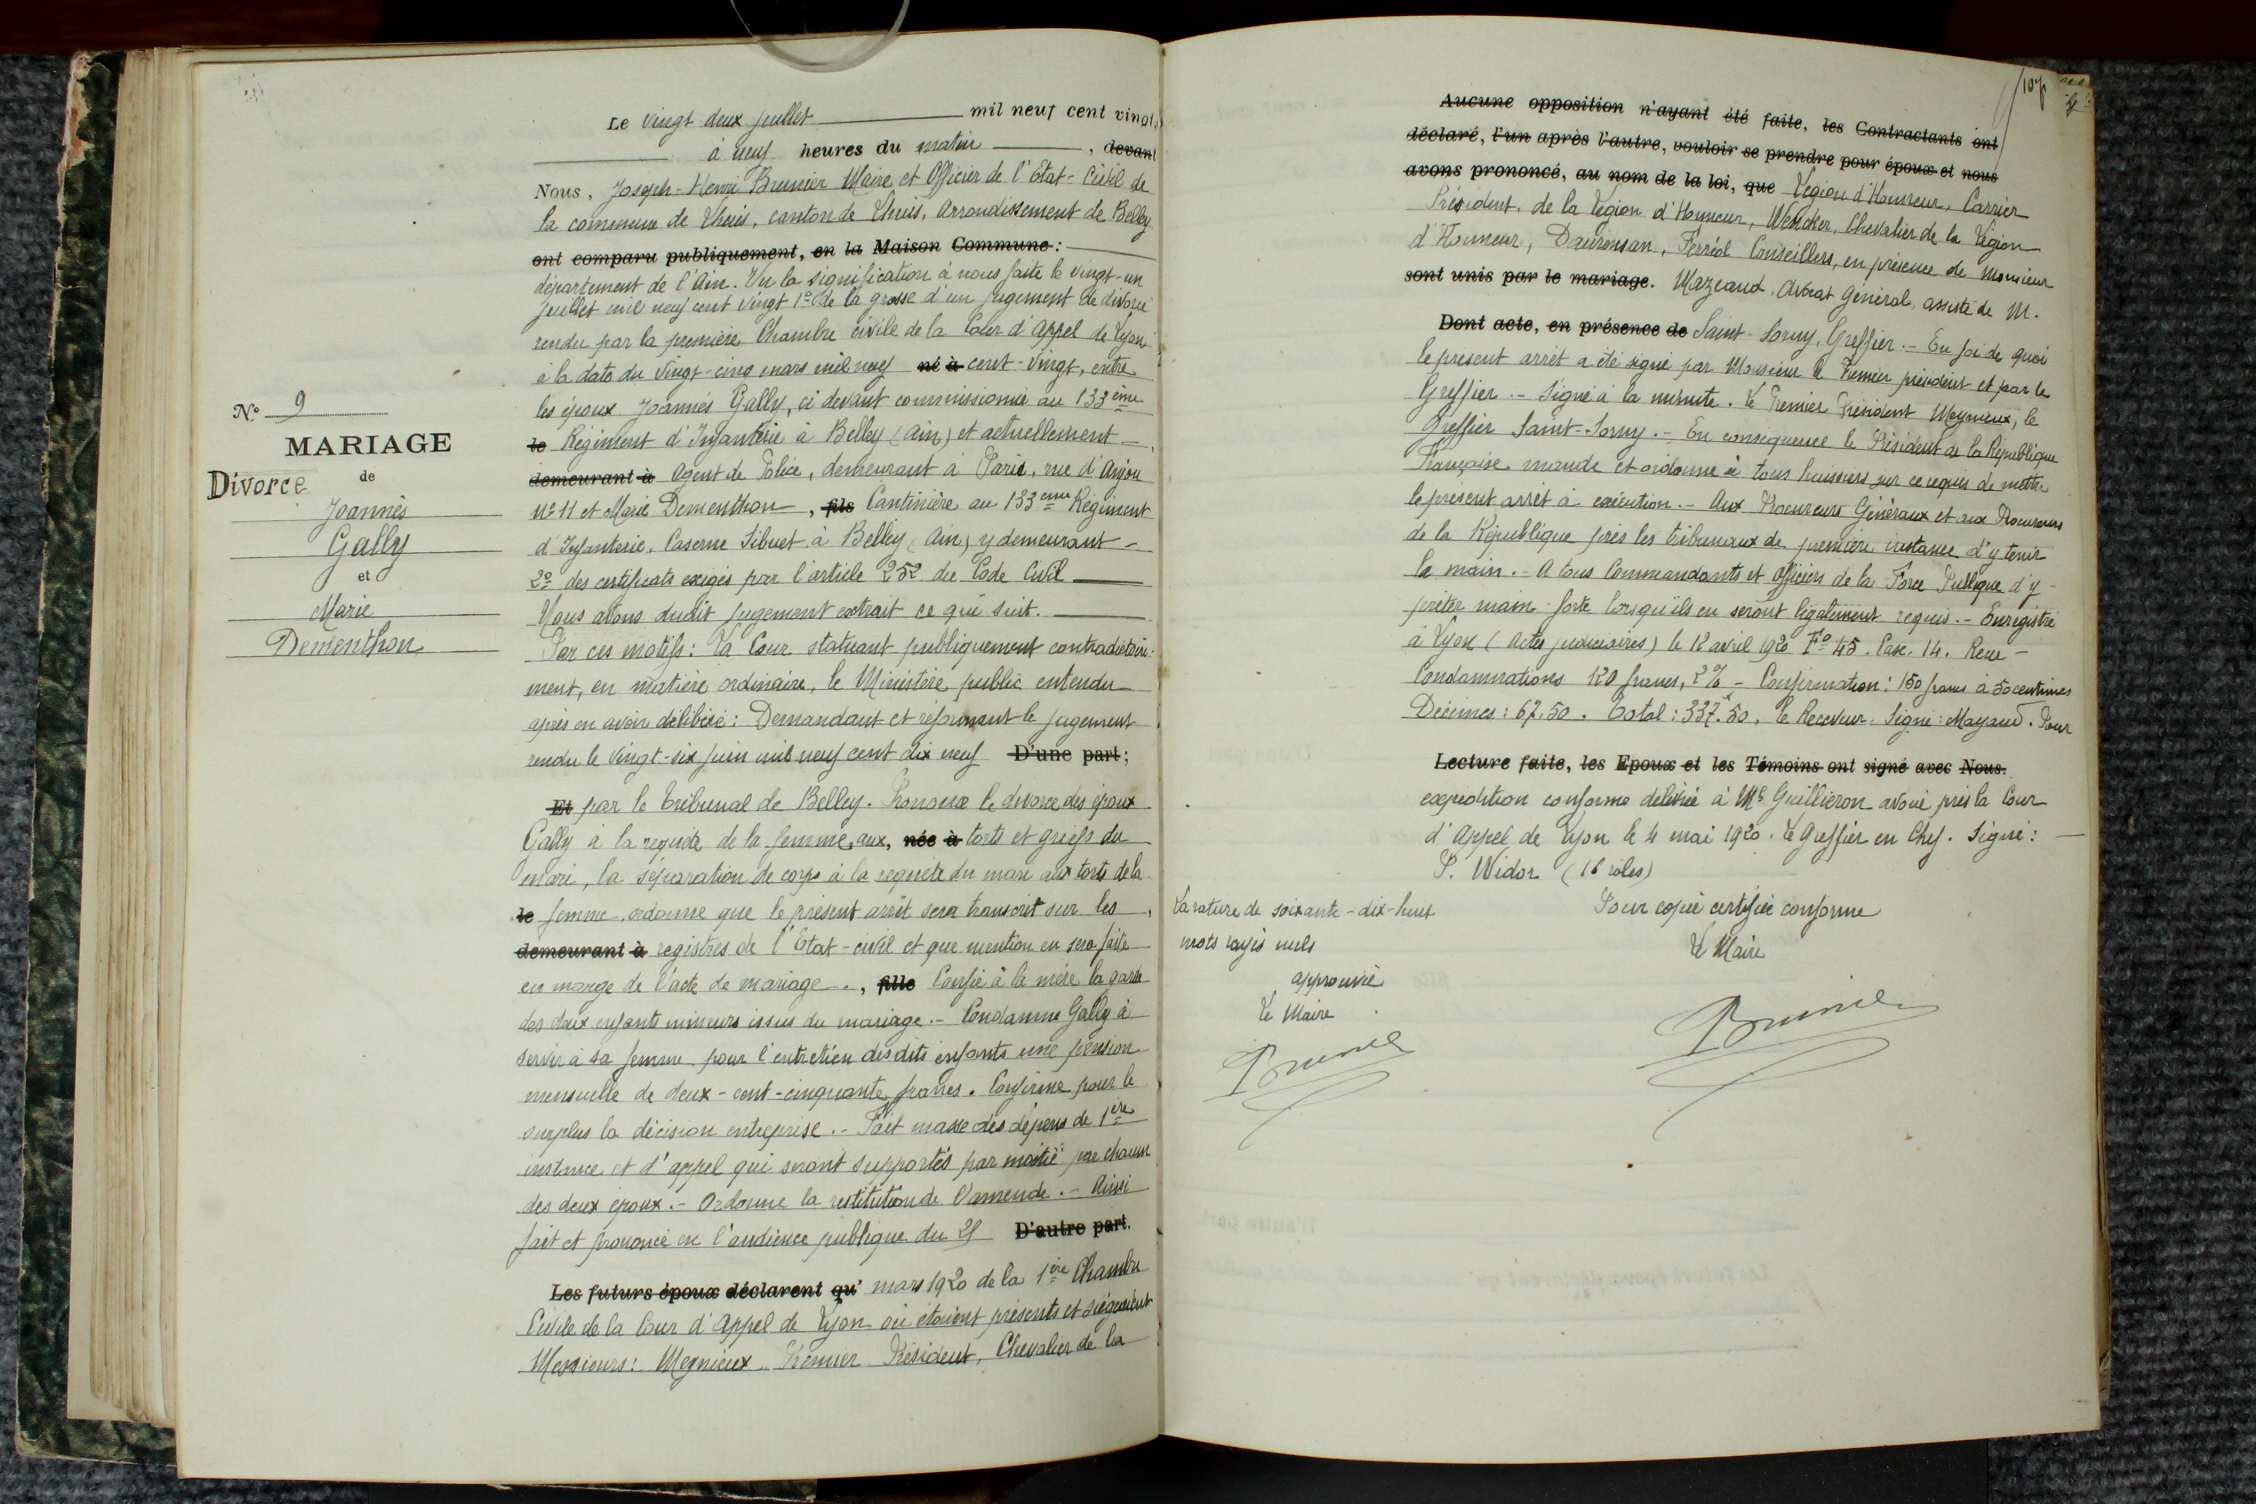 N° 9
MARIAGE
Divorce de
Joannès
Gally
et
Marie
Dementhon
Le vingt deux juillet mil neuf cent vingt,
à neuf heures du matin, devant
Nous, Joseph-Henri Brunier Maire et Officier de l'Etat-Civil de
la commune de Lhuis, canton de Lhuis, arrondissement de Belley
ont comparu publiquement, en la Maison Commune:
département de l'Ain. Vu la signification à nous faite le vingt-un
juillet mil neuf cent vingt 1° de la grosse d'un jugement de divorce
rendu par la première Chambre civile de la Cour d'Appel de Lyon
à la date du vingt-cinq mars mil neuf né à cent-vingt, entre
les époux Joannès Gally, ci devant commissionné au 133ème
le Régiment d'Infanterie à Belley (Ain) et actuellement
demeurant à Agent de Police, demeurant à Paris, rue d'Anjou
N° 11 et Marie Dementhon, fils Cantinière au 133ème Régiment
d'Infanterie. Caserne Sibuet à Belley (Ain) y demeurant -
2° des certificats exigés par l'article 252 du Code Civil
Nous avons dudit jugement extrait ce qui suit.
Par ces motifs: La Cour statuant publiquement contradictoire-
ment, en matière ordinaire, le Ministère public entendu
après en avoir délibéré: Demandant et réformant le jugement
rendu le vingt-six juin mil neuf cent dix neuf D'une part;
Et par le Tribunal de Belley. Prononce le divorce des époux
Gally à la requête de la femme, aux, née à torts et griefs du
mari, la séparation de corps à la requête du mari aux torts de la
le femme, ordonne que le présent arrêt sera transcrit sur les
demeurant à registres de l'Etat-civil et que mention en sera faite
en marge de l'acte de mariage., fille Confie à la mère la garde
des deux enfants mineurs issus du mariage.- Condamne Gally à
servir à sa femme pour l'entretien desdits enfants une pension
mensuelle de deux-cent-cinquante francs. Confirme pour le
surplus la décision entreprise.- Fait masse des dépens de 1ère
instance et d'appel qui seront supportés par moitié par chacun
des deux époux.- Ordonne la restitution de l'amende.- Ainsi
fait et prononcé en l'audience publique du 25 D'autre part.
Les futurs époux déclarent qu' mars 1920 de la 1ère Chambre
Civile de la Cour d'Appel de Lyon où étaient présents et siégeaient
Messieurs: Meynieux Premier Président, Chevalier de la
107
Aucune opposition n'ayant été faite, les Contractants ont
déclaré, l'un après l'autre, vouloir se prendre pour époux et nous
avons prononcé, au nom de la loi, que Légion d'Honneur, Carrier
Président, de la Légion d'Honneur, Wencker, Chevalier de la Légion
d'Honneur, Ferréol Conseillers, en présence de Monsieur
sont unis par le mariage. Mazeaud, Avocat Général, assisté de M.
Dont acte, en présence de Saint-Lorny, Greffier.- En foi de quoi
le présent arrêt a été signé par Monsieur le Premier président et par le
Greffier.- Signé à la minute. Le Premier Président Meynieux, le
Greffier Saint-Lorny.- En conséquence le Président de la République
Française mande et ordonne à tous huissiers sur ce requis de mettre
le présent arrêt à exécution.- Aux Procureurs Généraux et aux Procureurs
de la République près les tribunaux de première instance d'y tenir
la main.- A tous Commandants et Officiers de la Force Publique d'y
prêter main forte lorsqu'ils en seront légalement requis.- Enregistré
à Lyon (Actes judiciaires) le 12 avril 1920 F° 45. Case. 14. Reçu -
Condamnations 120 francs, 2% - Confirmation: 150 francs à 50 centimes
Décimes: 67,50. Total: 337.50. Le Receveur. Signé: Mayaud. Pour
Lecture faite, les Epoux et les Témoins ont signé avec Nous.
expédition conforme délivrée à Me Guillieron avoué près la Cour
d'Appel de Lyon le 4 mai 1920. Le Greffier en Chef. Signé:
P. Widor (16 rôles)
Pour copie certifiée conforme
Le Maire
Brunier
La rature de soixante-dix-huit
mots rayés nuls
approuvée
Le Maire
Brunier